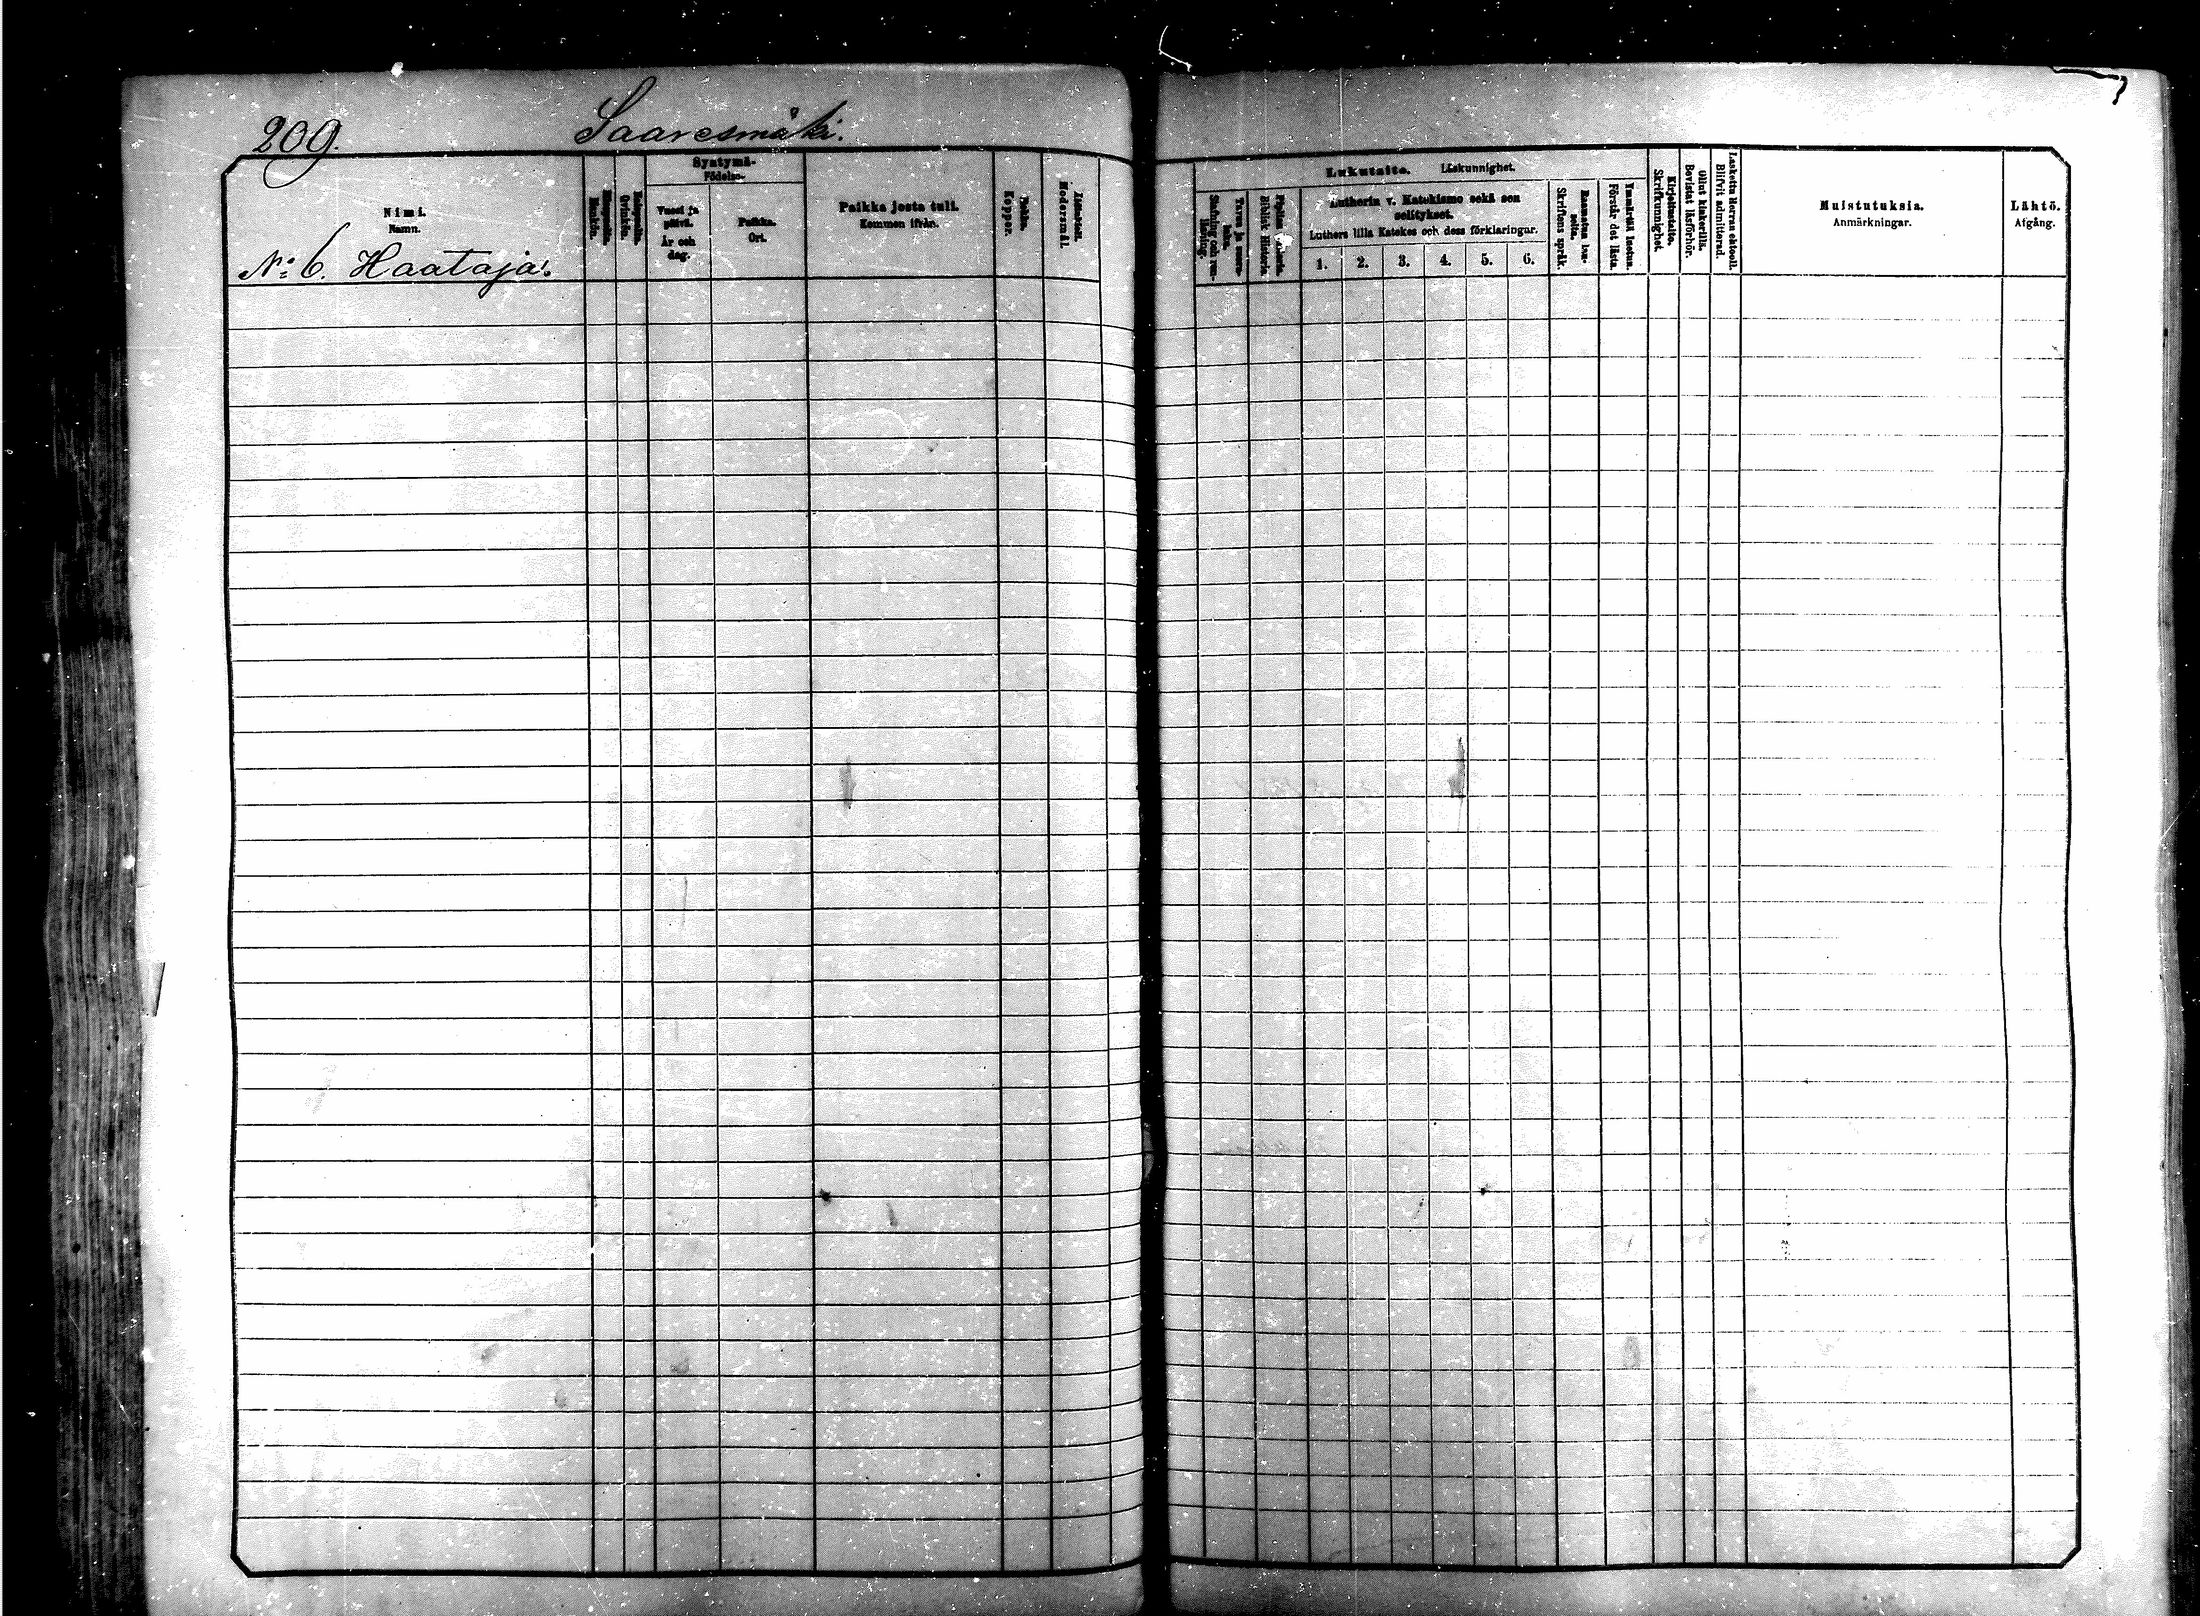 209.
Saaresmäki.
Nimi.
Namn.
№ 6. Haataja.
Miespuolia.
Mankön.
Vaimopuolia.
Qvinkön.
Syntymä-
Födelse-
Vuosi ja päivä.
År och dag.
Paikka.
Ort.
Paikka josta tuli.
Kommen ifrån.
Rokko.
Koppor.
Modersmål.
Lukutaito. Läskunnighet.
Tavaa ja suora luku.
Stafning och ren-läsning.
Biblisk Historia.
Lutherin v. Katekismo sekä sen
selitykset.
Luthers lilla Katekes och dess förklaringar.
1. 2. 3. 4. 5. 6.
Raamatun lau-seita.
Skriftens språk.
Ymmärtää luetun.
Förstår det lästa.
Kirjoitustaito.
Skrifkunnighet.
Ollut kinkerillä.
Bevistat läsförhör.
Laskettu Herran ehtooll.
Blifvit admitterad.
Muistutuksia.
Anmärkningar.
Lähtö.
Afgång.